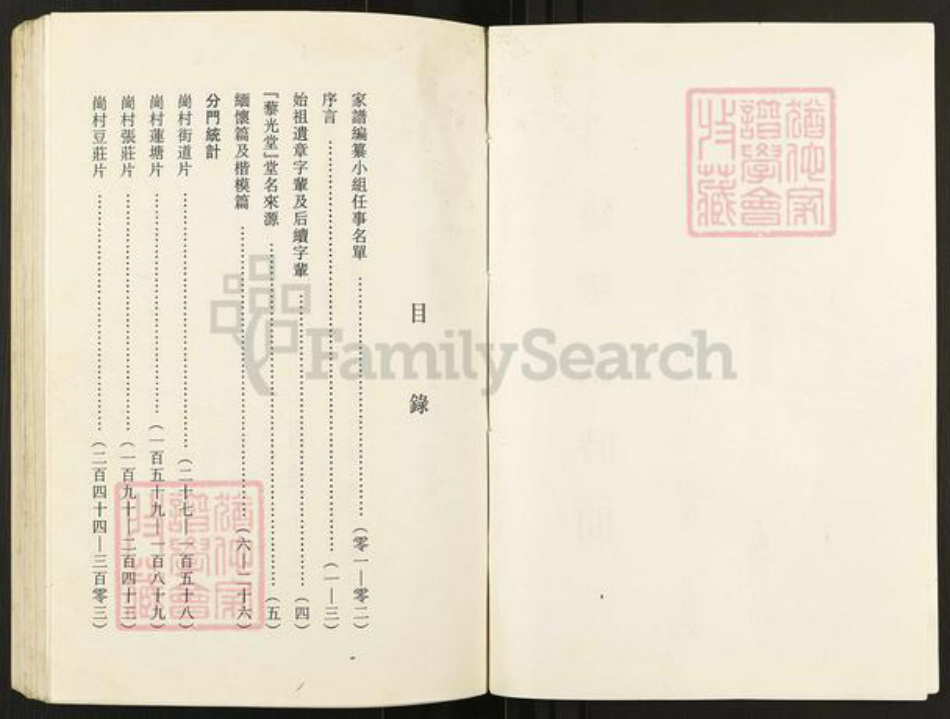 目錄
家譜編纂小組任事名單……(零一—零二)
序言……(一—三)
始祖遺章字輩及后續字輩……(四)
「藜光堂」堂名來源……(五)
緬懷篇及楷模篇……(六—二十六)
分門統計
崗村街道片……(二十七—一百五十八)
崗村蓮塘片……(一百五十九—一百八十九)
崗村張莊片……(一百九十—二百四十三)
崗村豆莊片……(二百四十四—三百零三)
FamilySearch